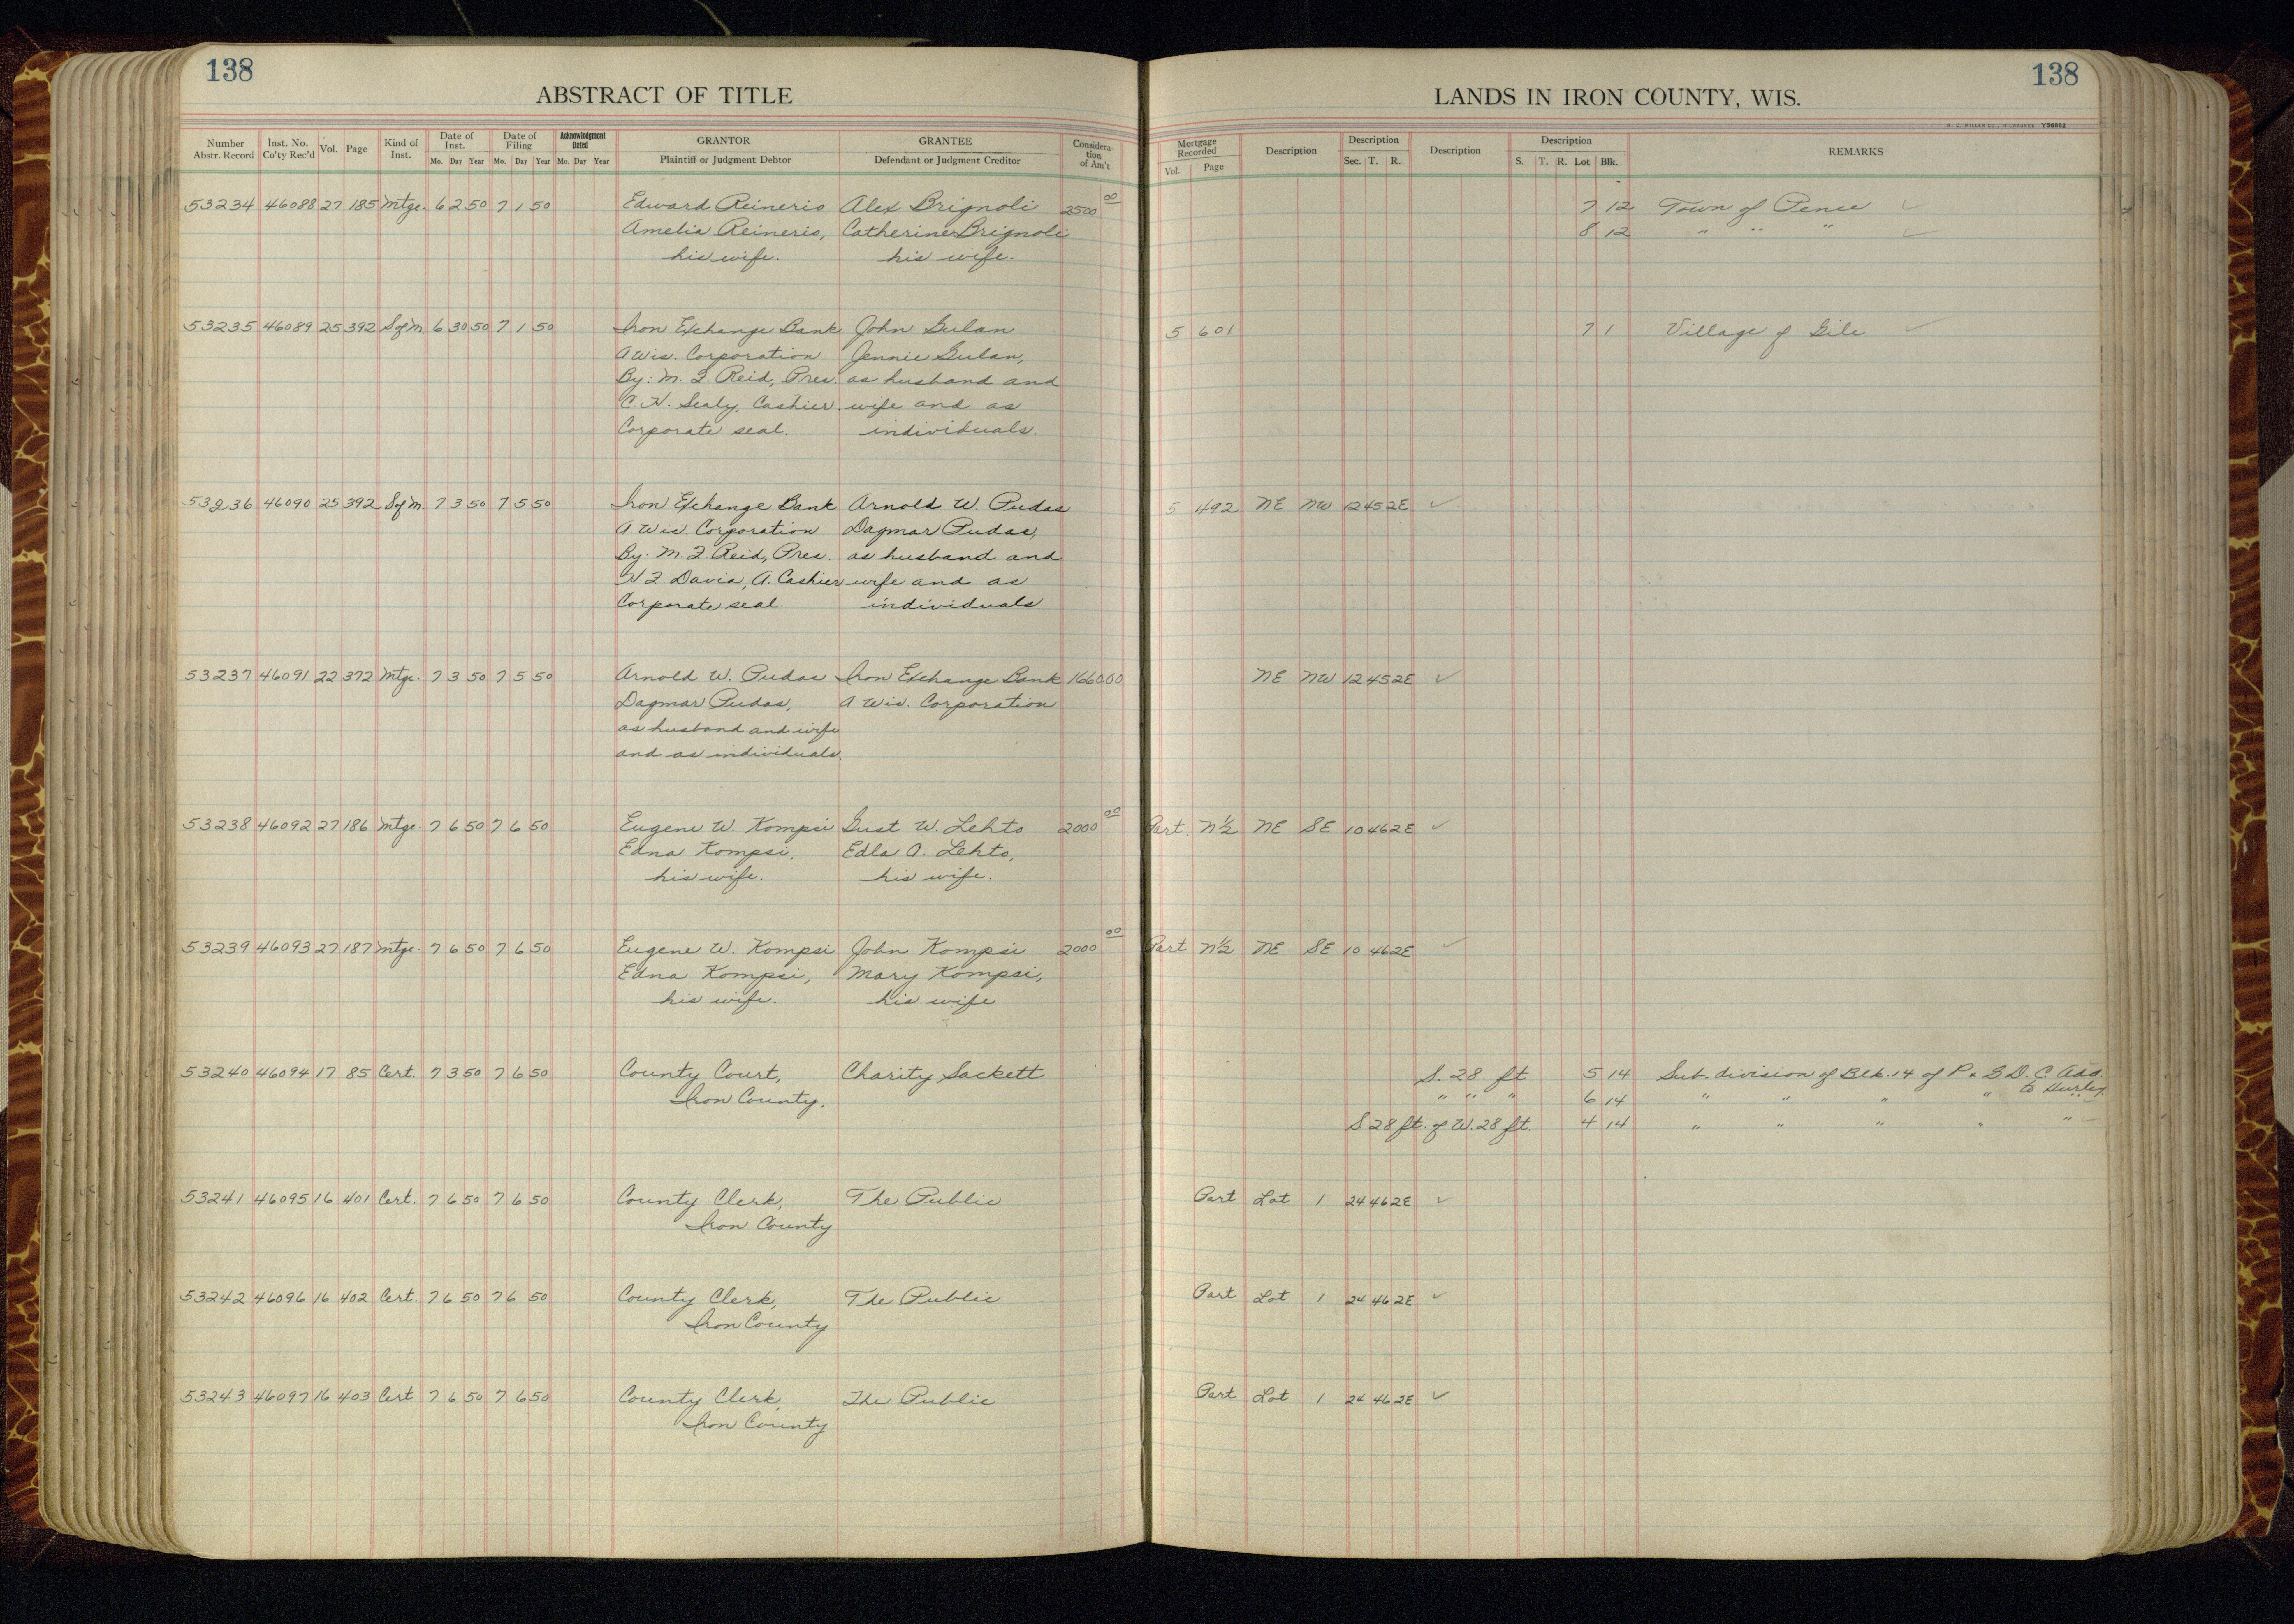 138
138
ABSTRACT OF TITLE
LANDS IN IRON COUNTY, WIS.
Number Abstr. Record Inst. No. Co'ty Rec'd Vol. Page Kind of Inst. Date of Inst. Mo. Day Year Date of Filing Mo. Day Year Acknowledgment Dated Mo. Day Year GRANTOR Plaintiff or Judgment Debtor GRANTEE Defendant or Judgment Creditor Considera-tion of Am't
Mortgage Recorded Vol. Page Description Description Sec. T. R. Description Description S. T. R. Lot Blk. REMARKS
53234 46088 27 185 Mtge. 6 2 50 7 1 50 Edward Reinerio Alex Brignoli 2500 00 7 12 Town of Pence ✓
Amelia Reinerio, Catherine Brignoli 8 12 " " " ✓
his wife. his wife.
53235 46089 25 392 Sofm. 6 30 50 7 1 50 Iron Exchange Bank John Gulan 5 601 7 1 Village of Gile ✓
A Wis. Corporation Jennie Gulan,
By: M. J. Reid, Pres. as husband and
C. N. Sealy, Cashier wife and as
Corporate seal. individuals.
53236 46090 25 392 Sofm. 7 3 50 7 5 50 Iron Exchange Bank Arnold W. Pudas 5 492 NE NW 12 45 2E ✓
A Wis. Corporation Dagmar Pudas,
By: M. J. Reid, Pres. as husband and
N J Davia, A. Cashier wife and as
Corporate seal. individuals
53237 46091 22 372 Mtge. 7 3 50 7 5 50 Arnold W. Pudas Iron Exchange Bank 1660.00 NE NW 12 45 2E ✓
Dagmar Pudas, A Wis. Corporation
as husband and wife
and as individuals.
53238 46092 27 186 Mtge. 7 6 50 7 6 50 Eugene W. Kompsi Gust W. Lehto 2000 00 Part N½ NE SE 10 46 2E ✓
Edna Kompsi, Edla A. Lehto,
his wife. his wife.
53239 46093 27 187 Mtge. 7 6 50 7 6 50 Eugene W. Kompsi John Kompsi 2000 00 Part N½ NE SE 10 46 2E ✓
Edna Kompsi, Mary Kompsi,
his wife. his wife
53240 46094 17 85 Cert. 7 3 50 7 6 50 County Court, Charity Sackett S. 28 ft 5 14 Sub. division of Blk. 14 of P. & G. D. C. Add. to Hurley.
Iron County. " " " 6 14 " " " "
S 28 ft. of W. 28 ft. 4 14 " " " " " ✓
53241 46095 16 401 Cert. 7 6 50 7 6 50 County Clerk, The Public Part Lot 1 24 46 2E ✓
Iron County
53242 46096 16 402 Cert. 7 6 50 7 6 50 County Clerk, The Public Part Lot 1 24 46 2E ✓
Iron County
53243 46097 16 403 Cert 7 6 50 7 6 50 County Clerk, The Public Part Lot 1 24 46 2E ✓
Iron County